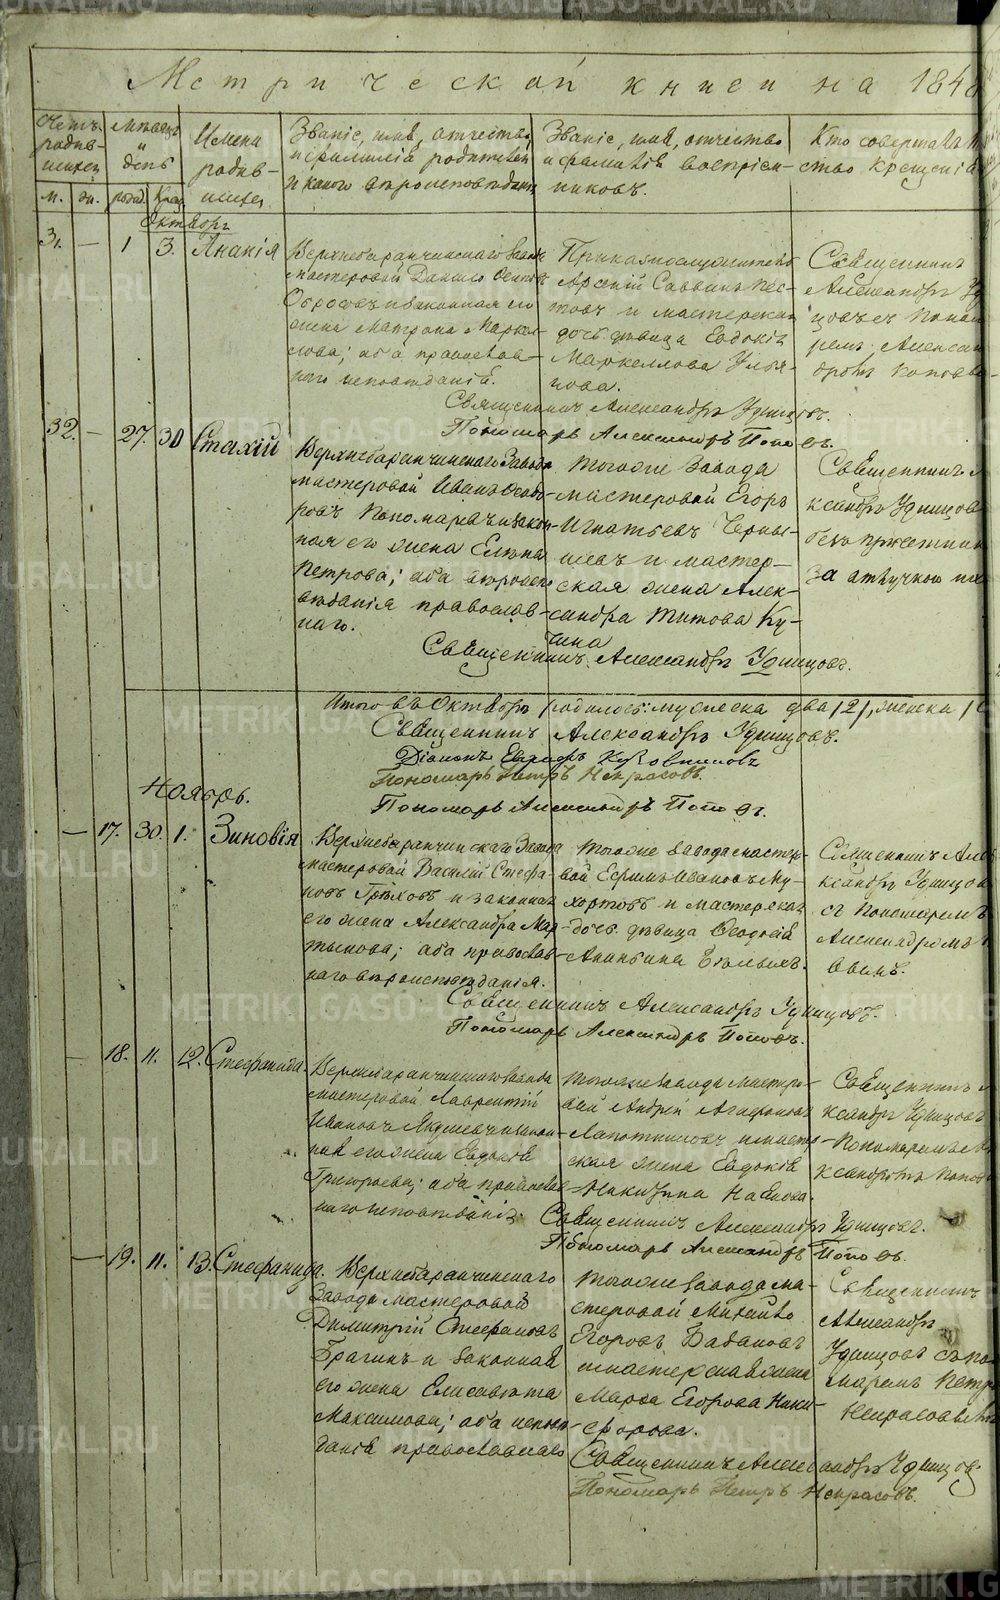 Метрической книги на 184
Счетъ родив-шихся
Мѣсяцъ и день
Имена родив-шихся
Званіе, имя, отчество, и фамилія родителей и какого вѣроисповѣданія
Званіе, имя, отчество и фамилія воспріем-никовъ.
Кто совершалъ
ство крещенія
м. ж. рожд. Крещ.
Октябрь
31. — 1 3. Ананія
Верхнебаранчинскаго завода
мастеровой Данило Осиповъ
и законная его
жена Матрона Маркел-
лова; оба православ-
наго исповѣданія.
Приказнослужитель
Арсеній Саввинъ Пес-
товъ и мастерская
дочь дѣвица Евдокія
Маркеллова Улья-
нова.
Священникъ
Александръ Уд
цовъ съ Поном
ремъ Алексан
дромъ Поповы
Священникъ Александръ Удинцовъ.
Пономарь Александръ Поповъ.
32. — 27. 30 Стахій
Верхнебаранчинскаго Завода
мастеровой Иванъ Ѳедо-
ровъ Пономаревъ и закон-
ная его жена Елена
Петрова; оба вѣроиспо-
вѣданія православ-
наго.
Тогоже Завода
мастеровой Егоръ
Игнатьевъ Черны-
шевъ и мастер-
ская жена Алек-
сандра Титова Ку-
чина
Священникъ А
ксандръ Удинцовъ
безъ причетник
за отлучкою их
Священникъ Александръ Удинцовъ.
Итого въ Октябрѣ родилось: мужеска два /2/, женска /
Священникъ Александръ Удинцовъ.
Діаконъ Евграфъ
Пономарь Петръ Некрасовъ.
Пономарь Александръ Поповъ.
Ноябрь.
— 17. 30. 1. Зиновія
Верхнебаранчинскаго Завода
мастеровой Василій Стефа-
новъ Грѣховъ и законная
его жена Александра Мар-
тынова; оба православ-
наго вѣроисповѣданія.
Тогоже завода мастеро-
вой Ефимъ Ивановъ Му-
хортовъ и мастерская
дочь дѣвица Ѳеодосія
Ананьина
Священникъ Але
ксандръ Удинцов
съ Пономаремъ
Александромъ
повымъ.
Священникъ Александръ Удинцовъ.
Пономарь Александръ Поповъ.
— 18. 11. 12. Стефанида.
Верхнебаранчинскаго Завода
мастеровой Лаврентій
Ивановъ и закон-
ная его жена Евдокія
Григорьева; оба православ-
наго исповѣданія.
Тогоже завода мастеро-
вой Андрей Агафоновъ
Лапотниковъ и мастер-
ская жена Евдокія
Никитина Павлова.
Священникъ А
ксандръ Удинцовъ
Пономаремъ Ал
ксандромъ Попов
Священникъ Александръ Удинцовъ.
Пономарь Александръ Поповъ.
— 19. 11. 13. Стефанида.
Верхнебаранчинскаго
Завода мастеровой
Димитрій Стефановъ
Брагинъ и законная
его жена Елисавета
Максимова; оба исповѣ-
данія православнаго
Тогоже завода ма-
стеровой Михайло
Егоровъ Бабановъ
и мастерская жена
Марѳа Егорова Ники-
форова.
Священникъ
Александръ
Удинцовъ съ по
маремъ Петр
Некрасовы
Священникъ Александръ Удинцовъ.
Пономарь Петръ Некрасовъ.
METRIKI.GASO-URAL.RU